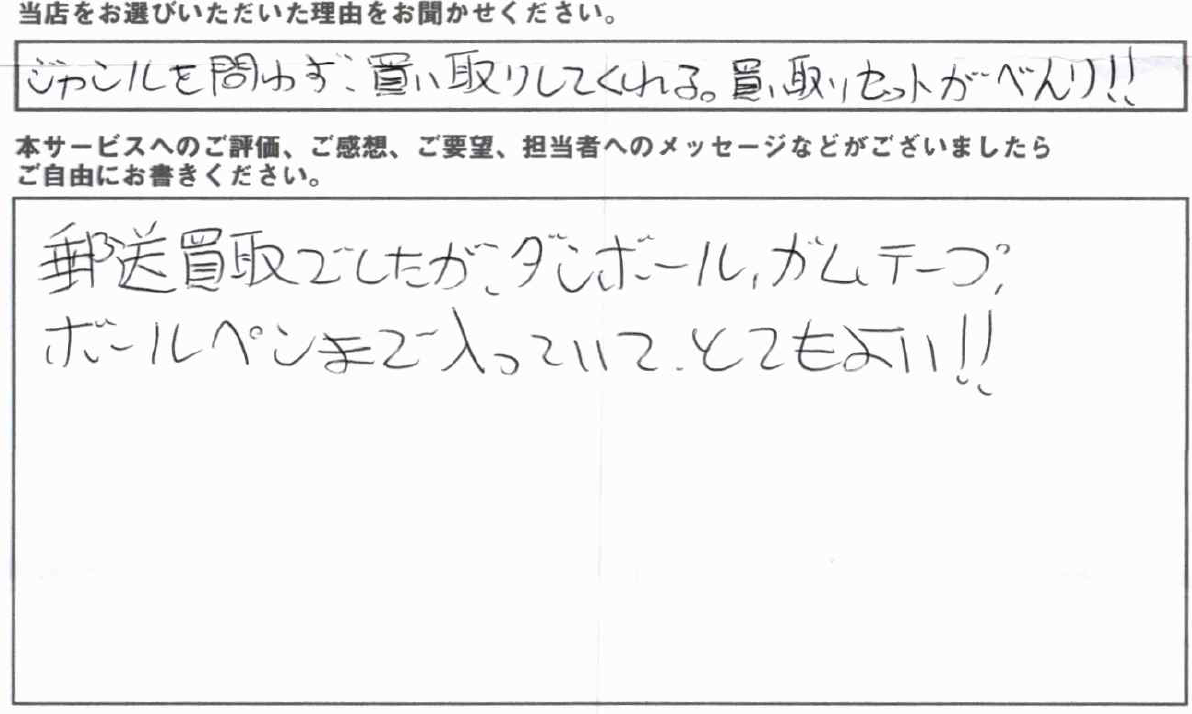 当店をお選びいただいた理由をお聞かせください。
ジャンルを問わず、買い取りしてくれる。買い取りセットがべんり!!
本サービスへのご評価、ご感想、ご要望、担当者へのメッセージなどがございましたら
ご自由にお書きください。
郵送買取でしたが、ダンボール、ガムテープ、
ボールペンまで入っていて、とてもよい!!